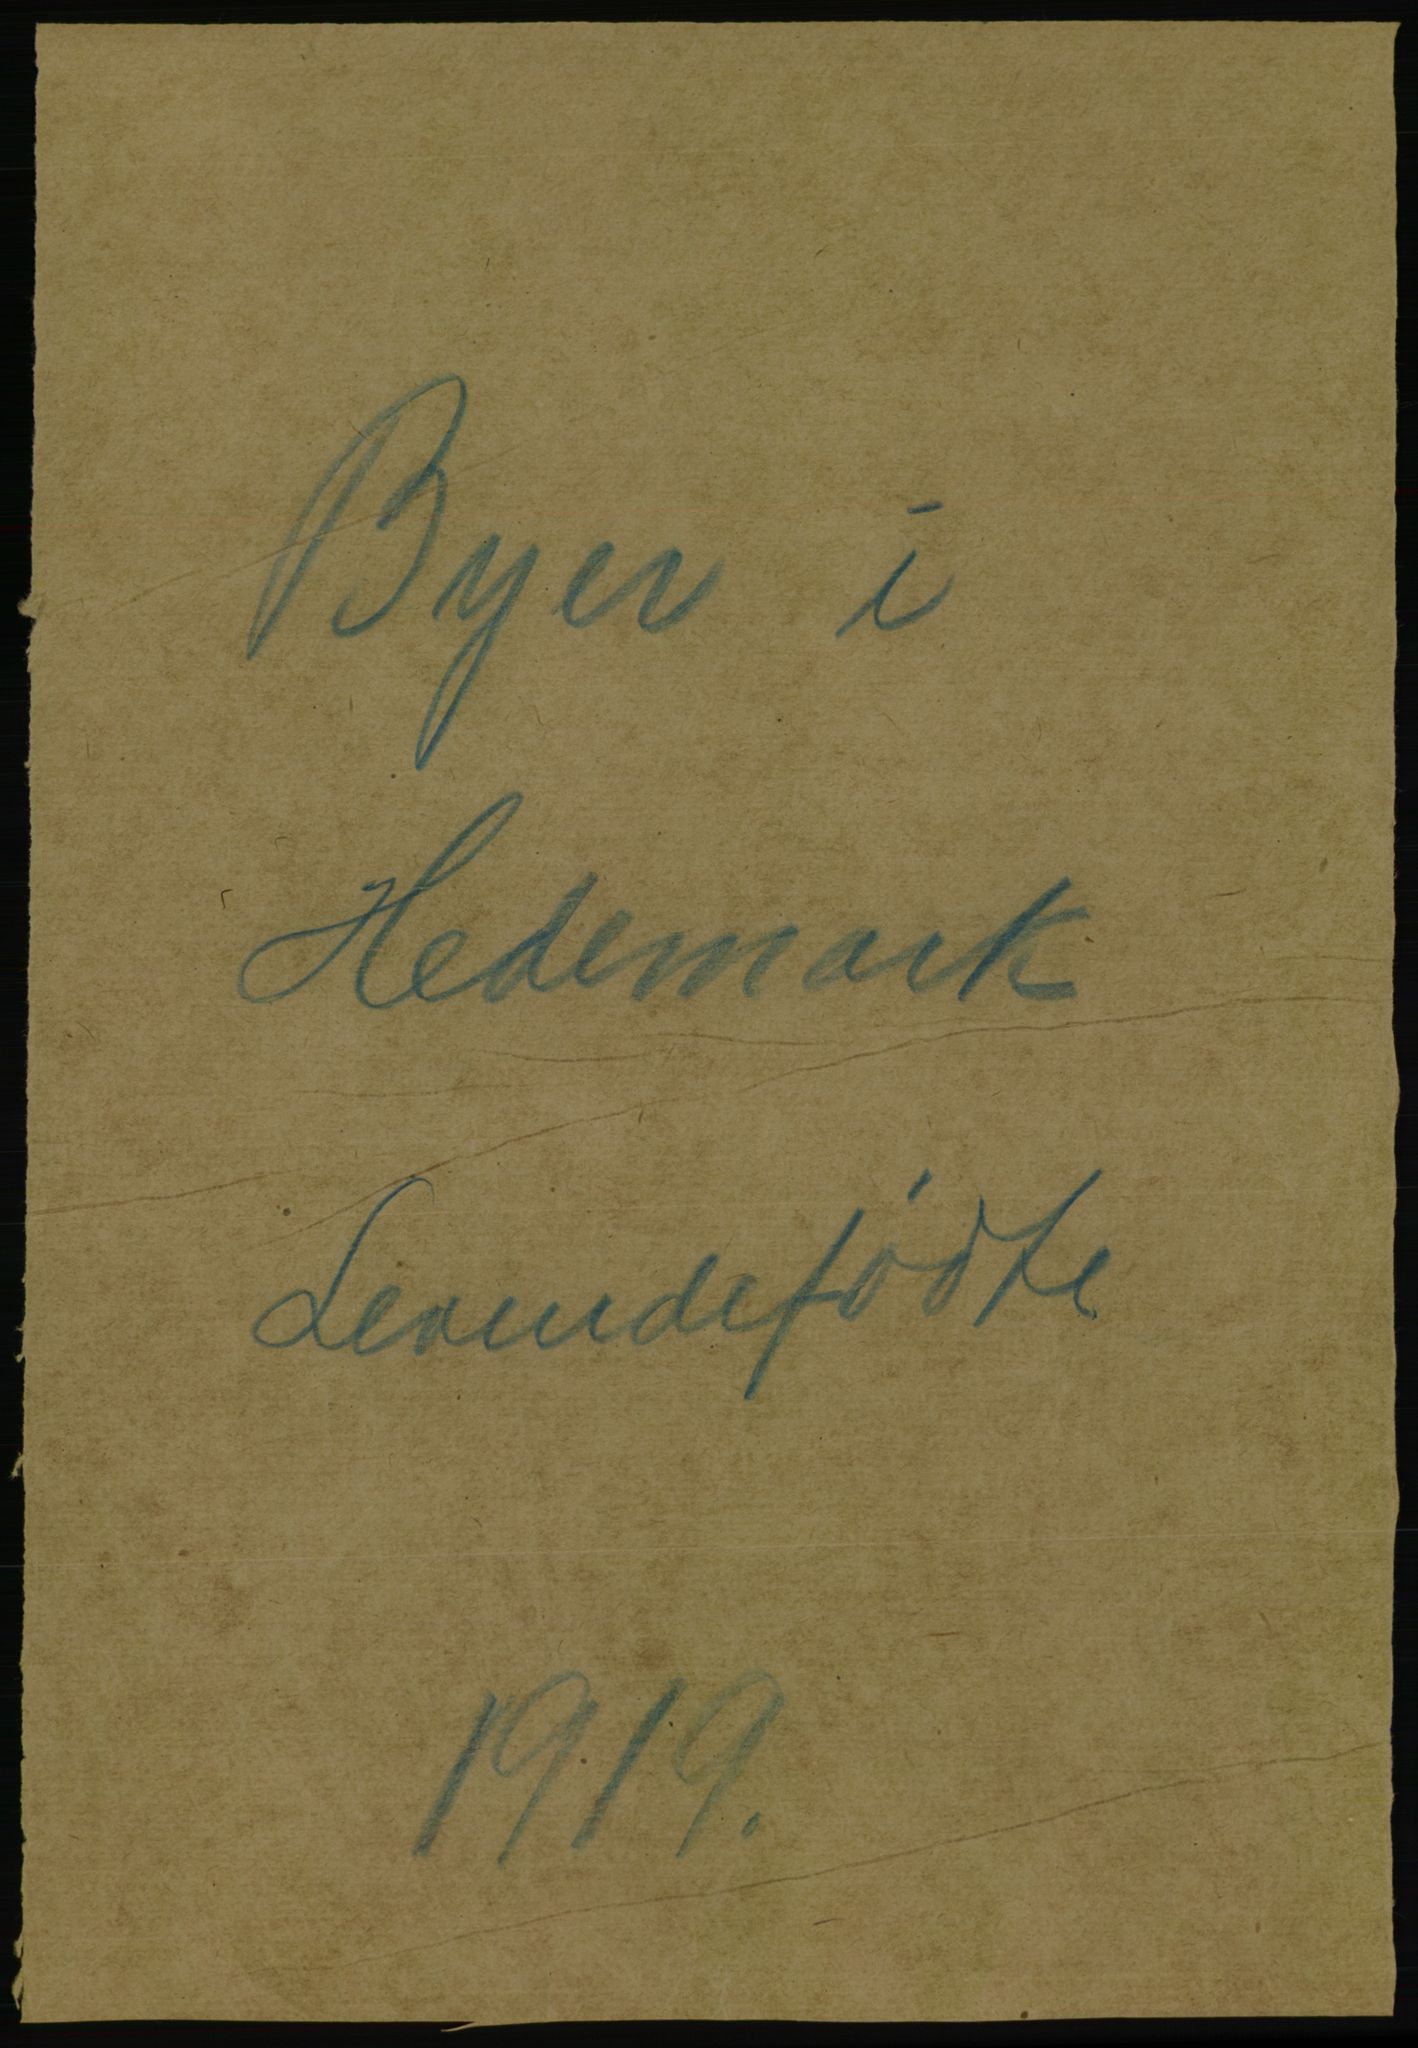 Byer i
Hedemark
Levendefødte
1919.